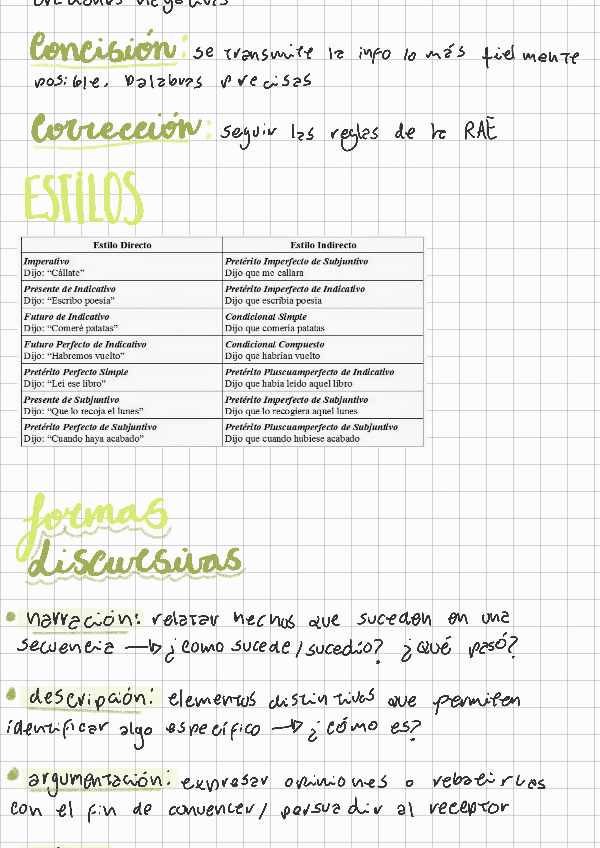 Concisión: se transmite la info lo más fielmente
posible. palabras precisas
Corrección: seguir las reglas de la RAE
ESTILOS
Estilo Directo Estilo Indirecto
Imperativo Pretérito Imperfecto de Subjuntivo
Dijo: “Cállate” Dijo que me callara
Presente de Indicativo Pretérito Imperfecto de Indicativo
Dijo: “Escribo poesía” Dijo que escribía poesía
Futuro de Indicativo Condicional Simple
Dijo: “Comeré patatas” Dijo que comería patatas
Futuro Perfecto de Indicativo Condicional Compuesto
Dijo: “Habremos vuelto” Dijo que habrían vuelto
Pretérito Perfecto Simple Pretérito Pluscuamperfecto de Indicativo
Dijo: “Leí ese libro” Dijo que había leído aquel libro
Presente de Subjuntivo Pretérito Imperfecto de Subjuntivo
Dijo: “Que lo recoja el lunes” Dijo que lo recogiera aquel lunes
Pretérito Perfecto de Subjuntivo Pretérito Pluscuamperfecto de Subjuntivo
Dijo: “Cuando haya acabado” Dijo que cuando hubiese acabado
formas
discursivas
narración: relatar hechos que suceden en una
secuencia → ¿como sucede/sucedio? ¿Qué pasó?
descripción: elementos distintivos que permiten
identificar algo específico → ¿cómo es?
argumentación: expresar opiniones o rebatirlas
con el fin de convencer/ persuadir al receptor